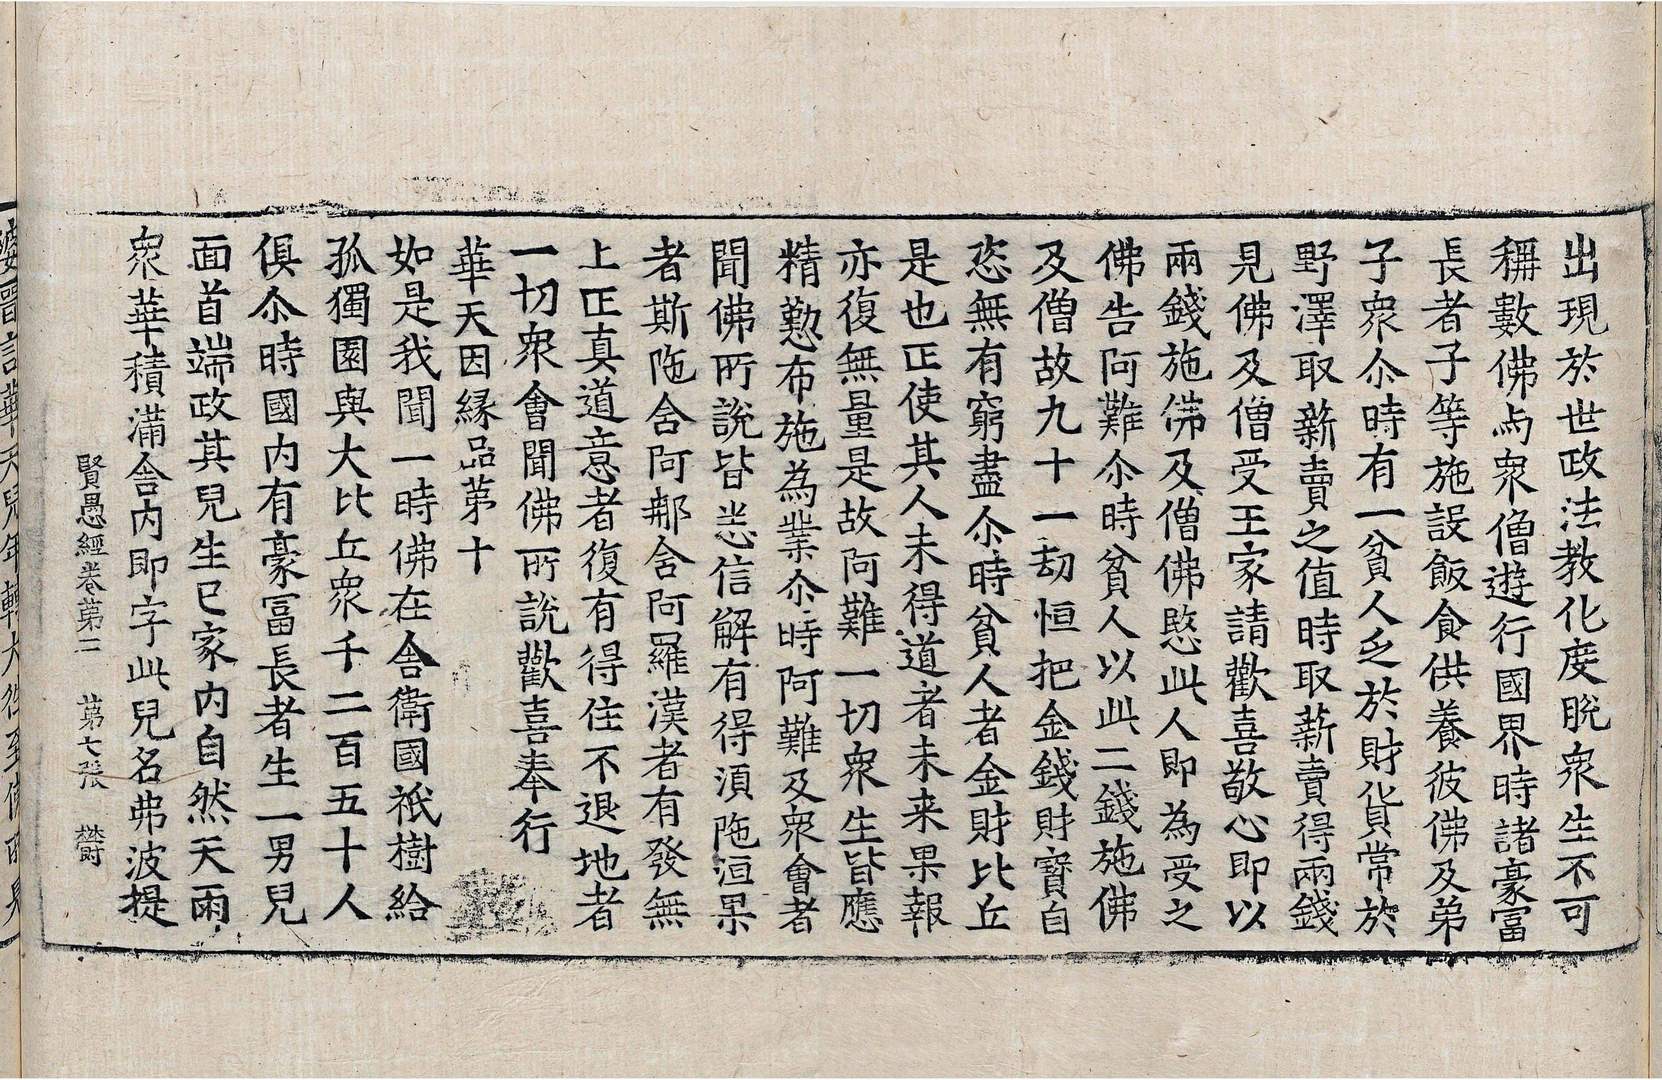 出現於世政法教化度脫衆生不可
稱數佛与衆僧遊行國界時諸豪冨
長者子等施設飯食供養彼佛及弟
子衆尒時有一貧人乏於財貨常於
野澤取薪賣之值時取薪賣得兩錢
見佛及僧受王家請歡喜敬心即以
兩錢施佛及僧佛愍此人即為受之
佛告阿難尒時貧人以此二錢施佛
及僧故九十一劫恒把金錢財寶自
恣無有窮盡尒時貧人者金財比丘
是也正使其人未得道者未来果報
亦復無量是故阿難一切衆生皆應
精懃布施為業尒時阿難及衆會者
聞佛所說皆悉信解有得須陁洹果
者斯陁含阿那含阿羅漢者有發無
上正真道意者復有得住不退地者
一切衆會聞佛所說歡喜奉行
華天因縁品第十
如是我聞一時佛在舍衛國祇樹給
孤獨園與大比丘衆千二百五十人
俱尒時國內有豪冨長者生一男兒
面首端政其兒生已家內自然天雨
衆華積滿舍內即字此兒名弗波提
賢愚經卷第二 第七張 欝
婆晉言華天兒年轉大往到佛所見